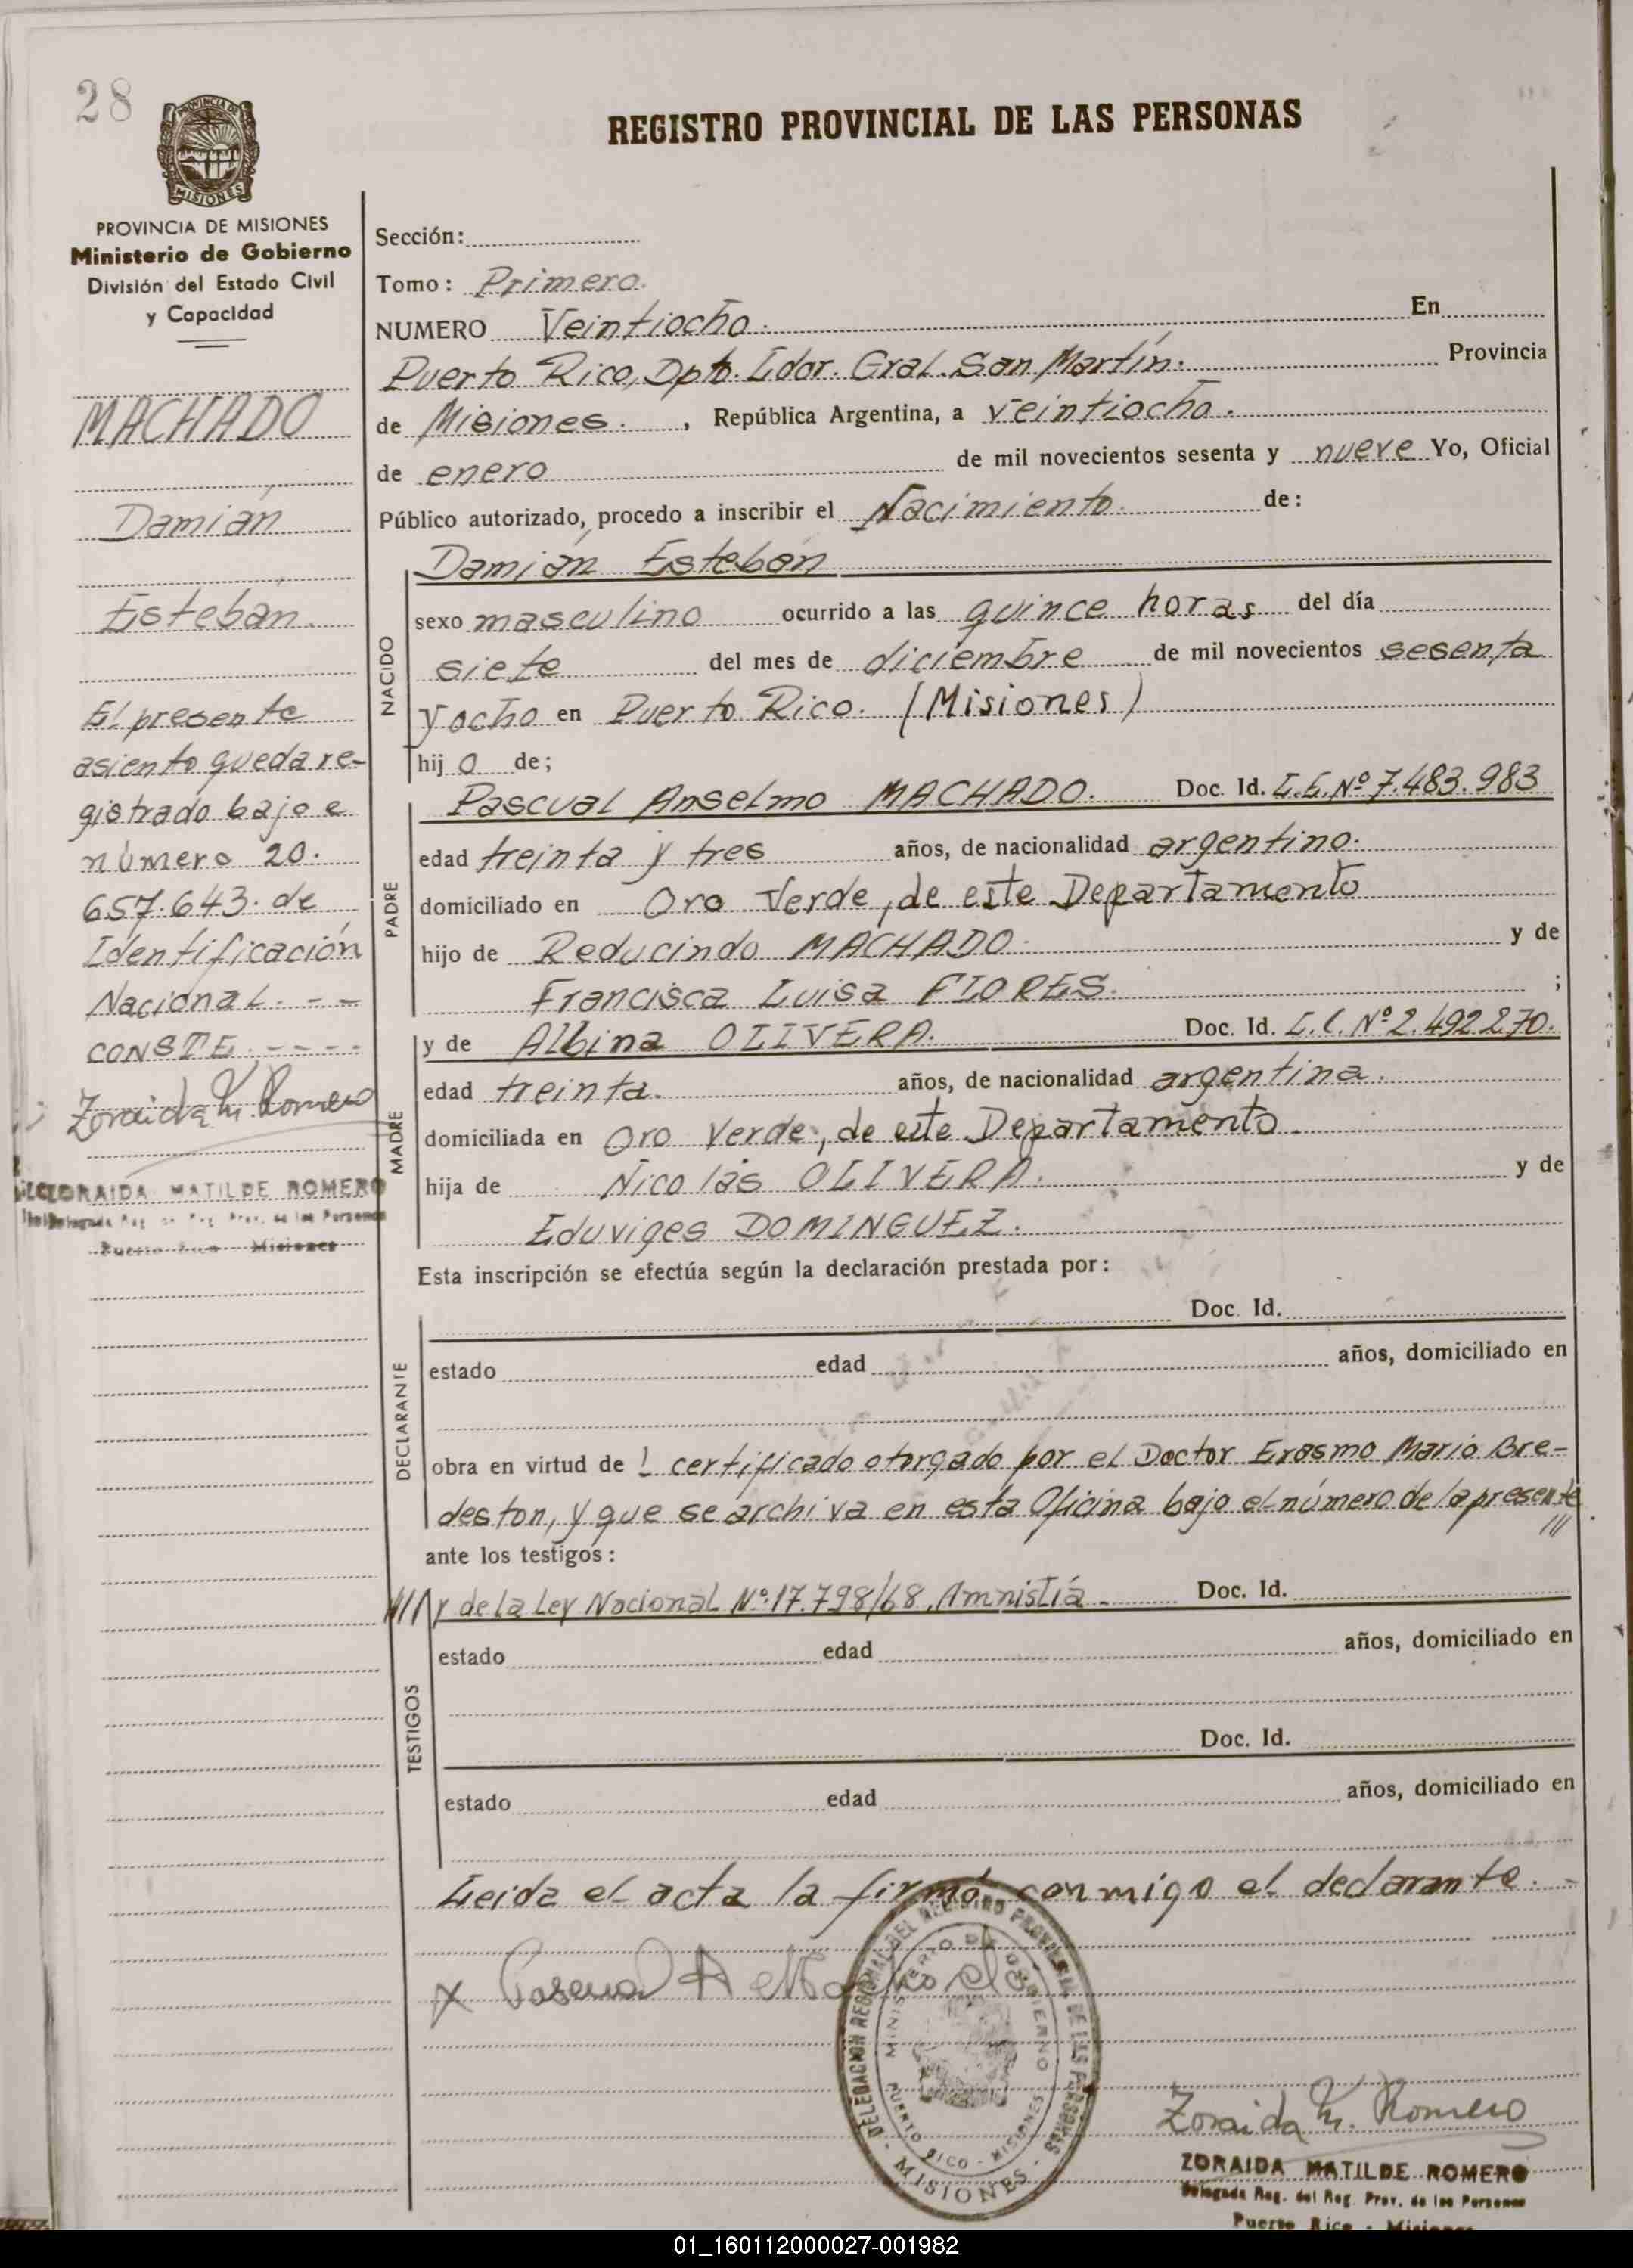 28
PROVINCIA DE
MISIONES
REGISTRO PROVINCIAL DE LAS PERSONAS
PROVINCIA DE MISIONES
Ministerio de Gobierno
División del Estado Civil
y Capacidad
MACHADO
Damián
Esteban.
El presente
asiento queda re-
gistrado bajo e
número 20.
657.643. de
Identificación
Nacional. - -
CONSTE. - - - -
Zoraida M. Romero
ZORAIDA MATILDE ROMERO
Delegada Reg. Prov. de las Personas
Puerto Rico - Misiones
Sección:
Tomo: Primero.
NUMERO Veintiocho. En
Puerto Rico, Dpto. Ldor. Gral. San Martín. Provincia
de Misiones. , República Argentina, a veintiocho.
de enero de mil novecientos sesenta y nueve Yo, Oficial
Público autorizado, procedo a inscribir el Nacimiento. de:
NACIDO
Damián Esteban
sexo masculino ocurrido a las quince horas del día
siete del mes de diciembre de mil novecientos sesenta
y ocho en Puerto Rico. (Misiones)
hij o de;
PADRE
Pascual Anselmo MACHADO. Doc. Id. L.E. Nº 7.483.983
edad treinta y tres años, de nacionalidad argentino.
domiciliado en Oro Verde, de este Departamento
hijo de Reducindo MACHADO. y de
Francisca Luisa FLORES. ;
MADRE
y de Albina OLIVERA. Doc. Id. L.C. Nº 2.492.270.
edad treinta. años, de nacionalidad argentina.
domiciliada en Oro Verde, de este Departamento.
hija de Nicolás OLIVERA. y de
Eduviges DOMINGUEZ.
Esta inscripción se efectúa según la declaración prestada por:
DECLARANTE
Doc. Id.
estado edad años, domiciliado en
obra en virtud de l certificado otorgado por el Doctor Erasmo Mario Bre-
deston, y que se archiva en esta Oficina bajo el número de la presente
///
ante los testigos:
/// y de la Ley Nacional Nº 17.798/68, Amnistía. Doc. Id.
TESTIGOS
estado edad años, domiciliado en
Doc. Id.
estado edad años, domiciliado en
Leida el acta la firmó conmigo el declarante. -
x Pascual A Machado
DELEGACION REGIONAL DEL REGISTRO PROVINCIAL DE LAS PERSONAS
MINISTERIO DE GOBIERNO
PUERTO RICO - MISIONES
- MISIONES -
Zoraida M. Romero
ZORAIDA MATILDE ROMERO
Delegada Reg. del Reg. Prov. de las Personas
Puerto Rico - Misiones
01_160112000027-001982